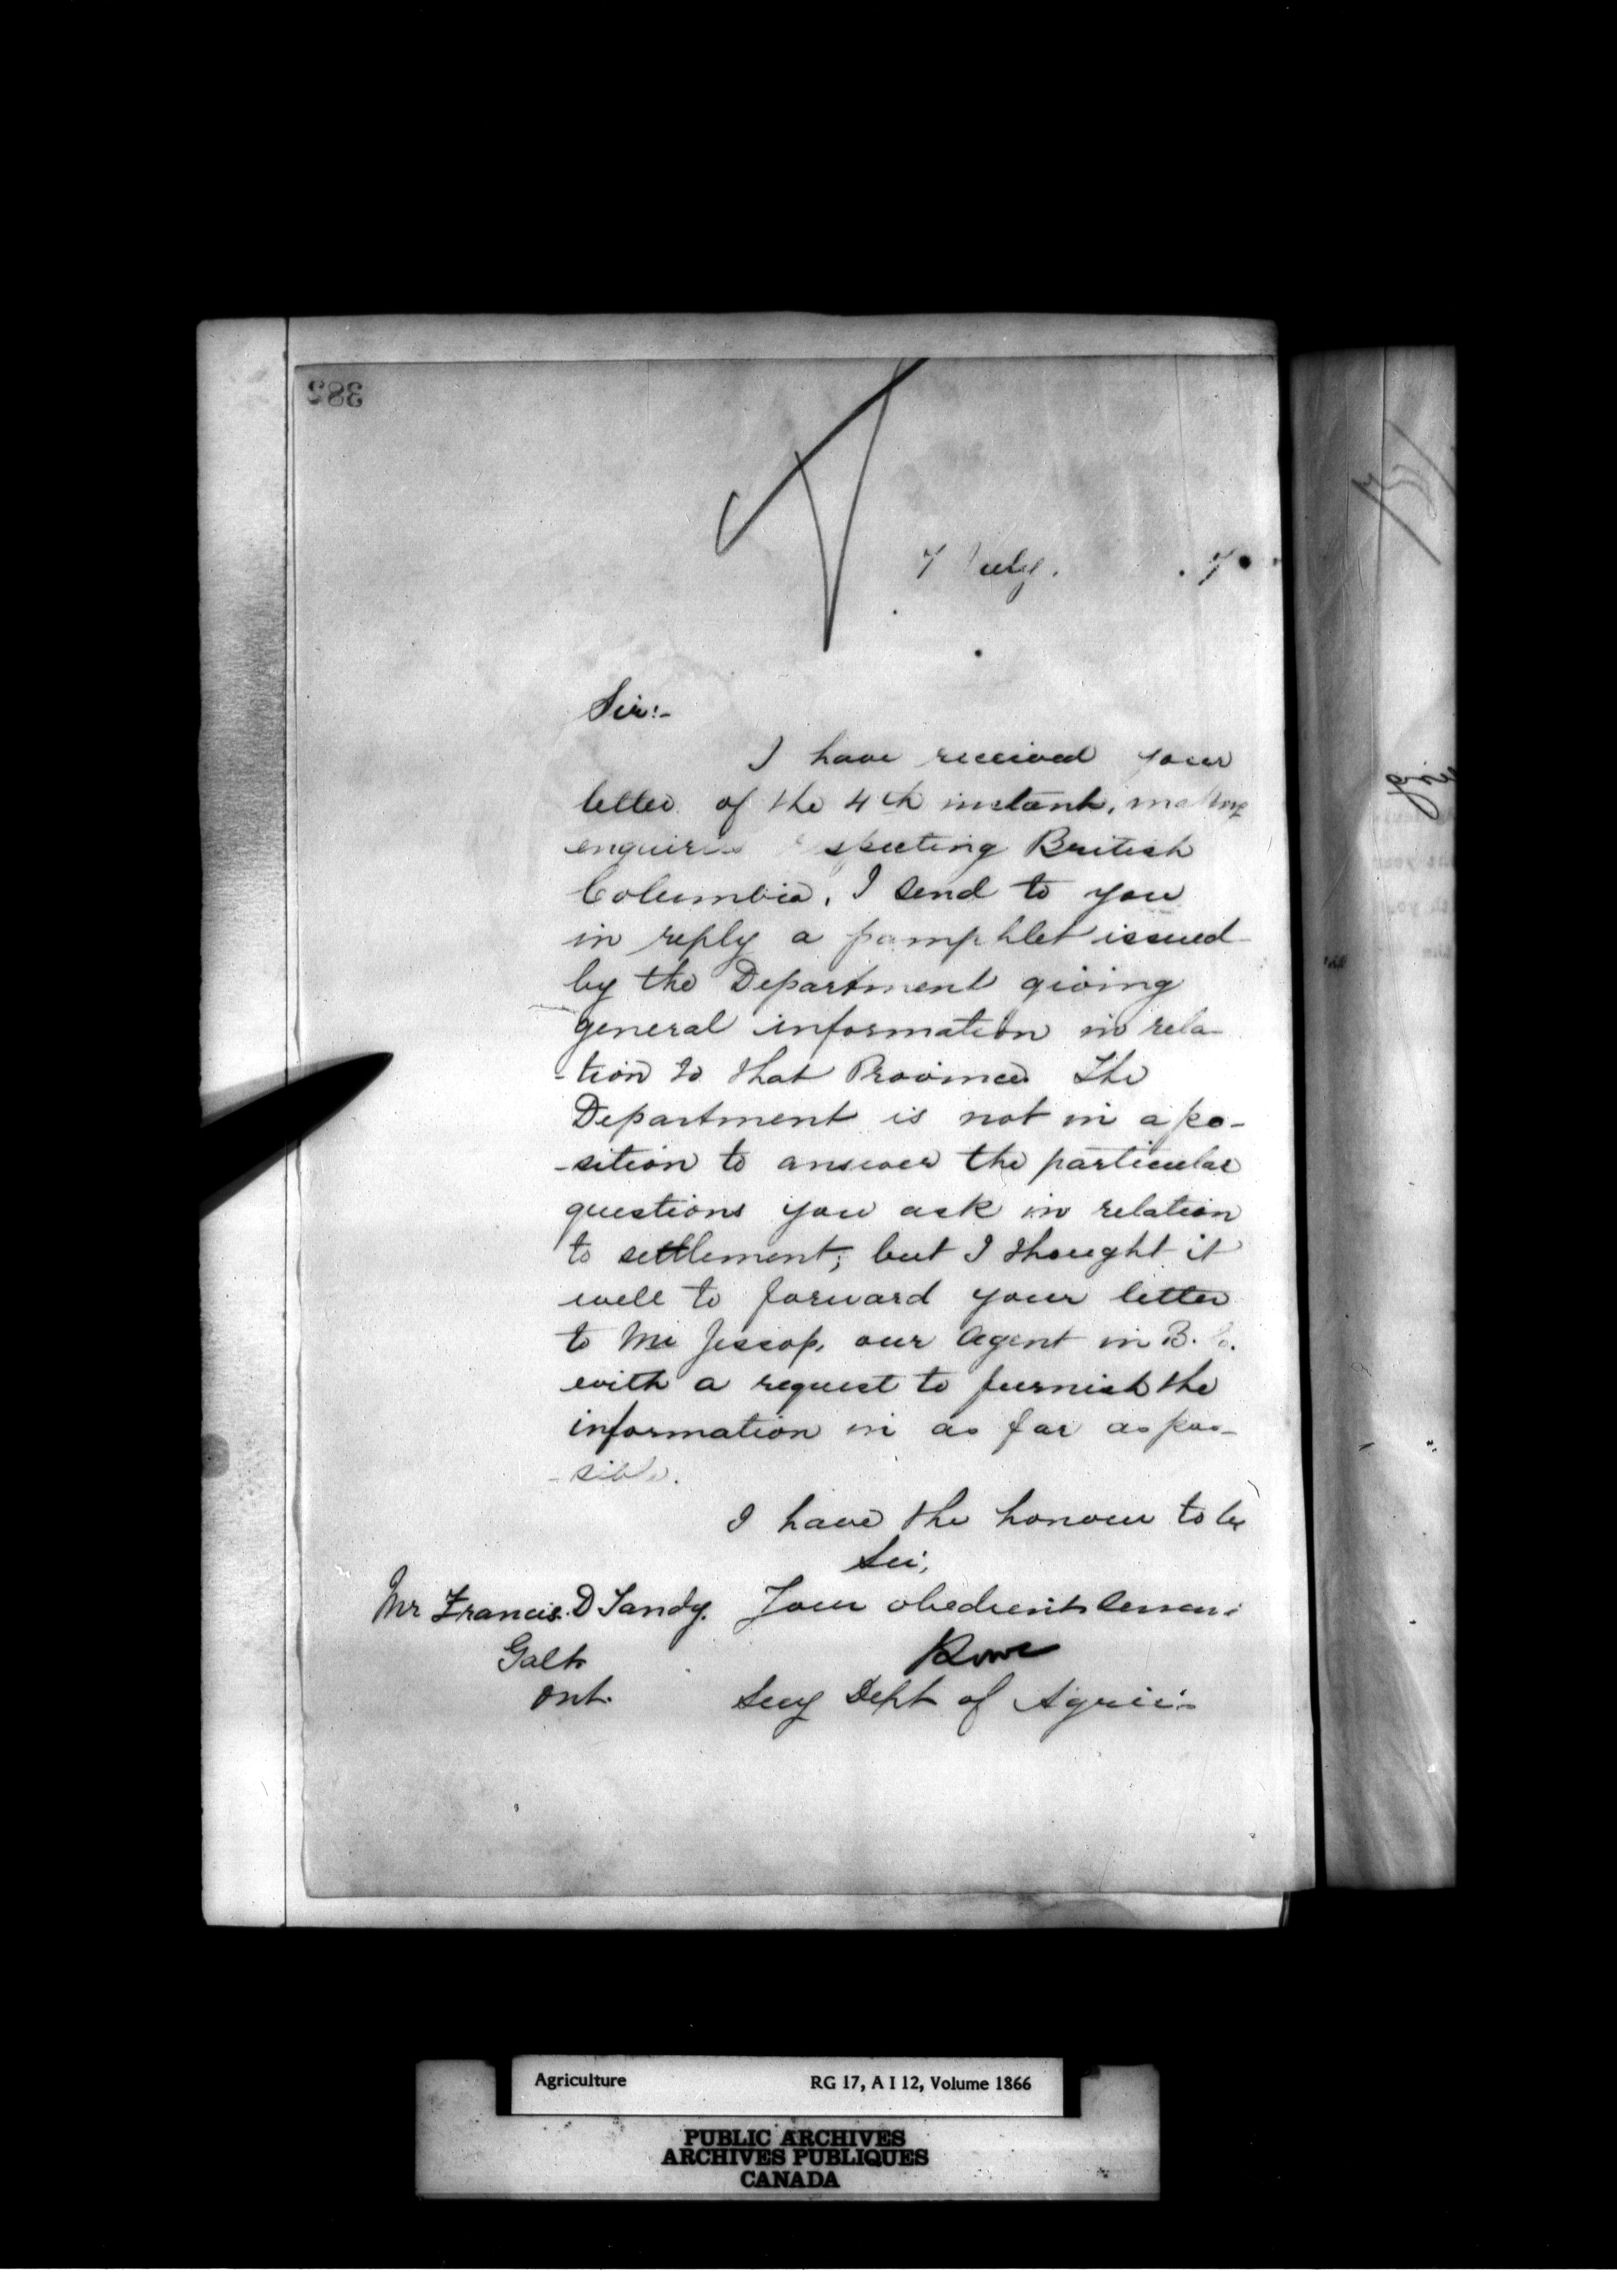 382
7 July.
Sir:-
I have received your
letter of the 4th instant, making
enquiries respecting British
Columbia. I send to you
in reply a pamphlet issued
by the Department giving
general information in rela-
-tion to that Province. The
Department is not in a po-
-sition to answer the particular
questions you ask in relation
to settlement; but I thought it
well to forward your letter
to Mr Jessop, our Agent in B.C.
with a request to furnish the
information in as far as pos-
-sible.
I have the honour to be
Sir,
Your obedient Servant
Mr Francis. D Tandy.
Galt
Ont.
Secy Dept of
Agriculture
RG 17, A I 12, Volume 1866
PUBLIC ARCHIVES
ARCHIVES PUBLIQUES
CANADA